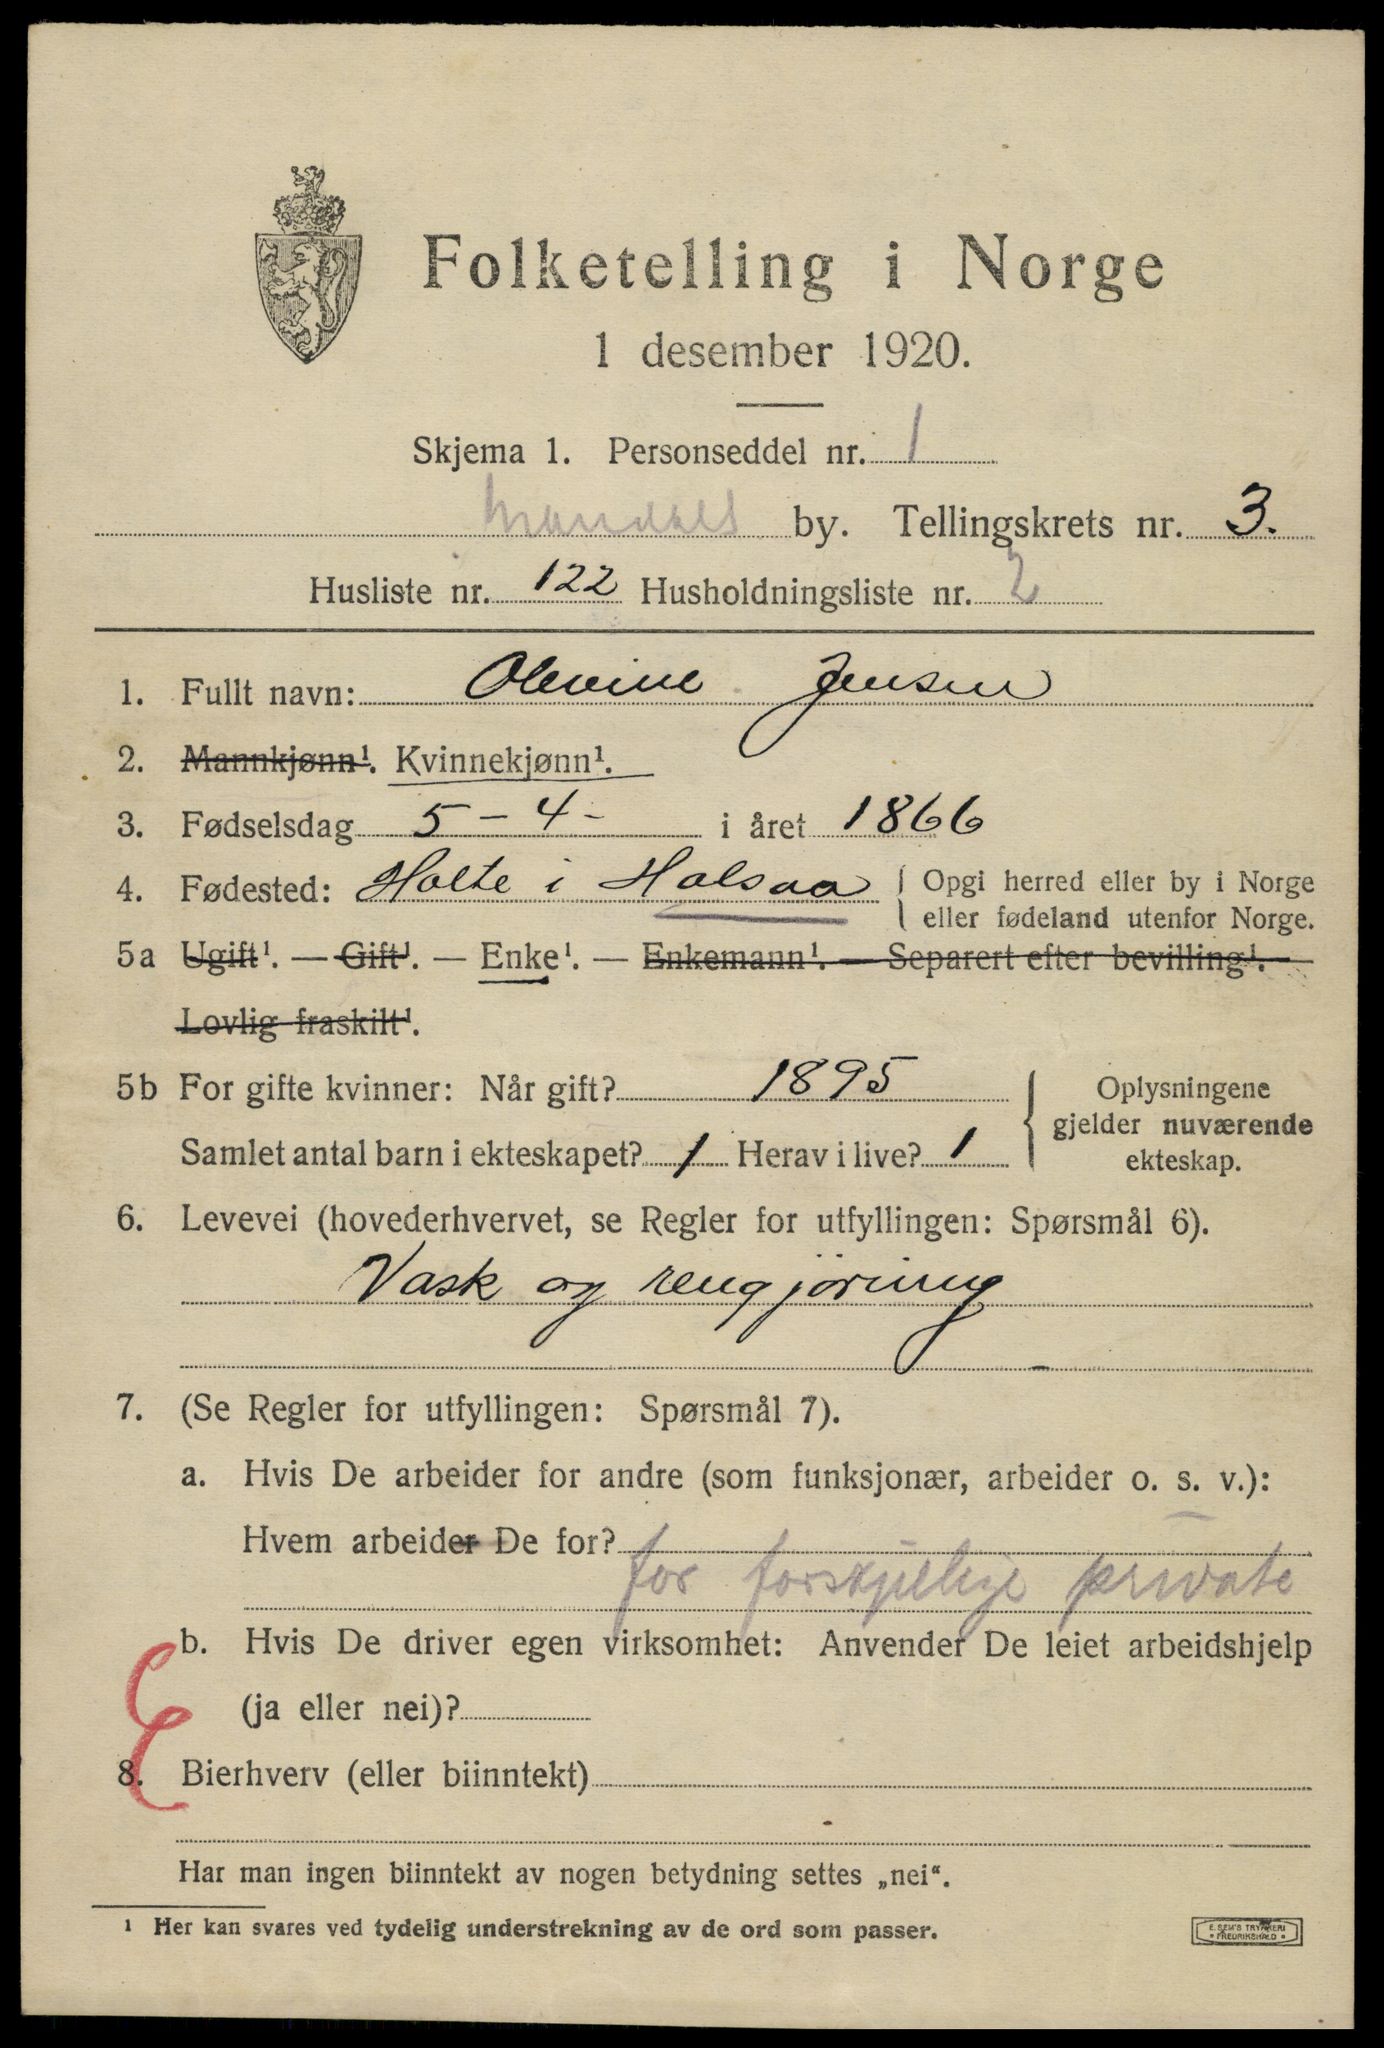 Folketelling i Norge
1 desember 1920.
Skjema 1. Personseddel nr. 1
Mandals by. Tellingskrets nr. 3.
Husliste nr. 122 Husholdningsliste nr. 2
1. Fullt navn: Olevine Jensen
2. Mannkjønn¹. Kvinnekjønn¹.
3. Fødselsdag 5 - 4 - i året 1866
4. Fødested: Holte i Halsaa { Opgi herred eller by i Norge
eller fødeland utenfor Norge.
5a Ugift¹. — Gift¹. — Enke¹. — Enkemann¹. — Separert efter bevilling¹. —
Lovlig fraskilt¹.
5b For gifte kvinner: Når gift? 1895
Samlet antal barn i ekteskapet? 1 Herav i live? 1
Oplysningene
gjelder nuværende
ekteskap.
6. Levevei (hovederhvervet, se Regler for utfyllingen: Spørsmål 6).
Vask og rengjøring
7. (Se Regler for utfyllingen: Spørsmål 7).
a. Hvis De arbeider for andre (som funksjonær, arbeider o. s. v.):
Hvem arbeider De for?
for forskjellige private
b. Hvis De driver egen virksomhet: Anvender De leiet arbeidshjelp
(ja eller nei)?
8. Bierhverv (eller biinntekt)
Har man ingen biinntekt av nogen betydning settes „nei“.
¹ Her kan svares ved tydelig understrekning av de ord som passer.
E. SEM'S TRYKKERI
* FREDRIKSHALD *